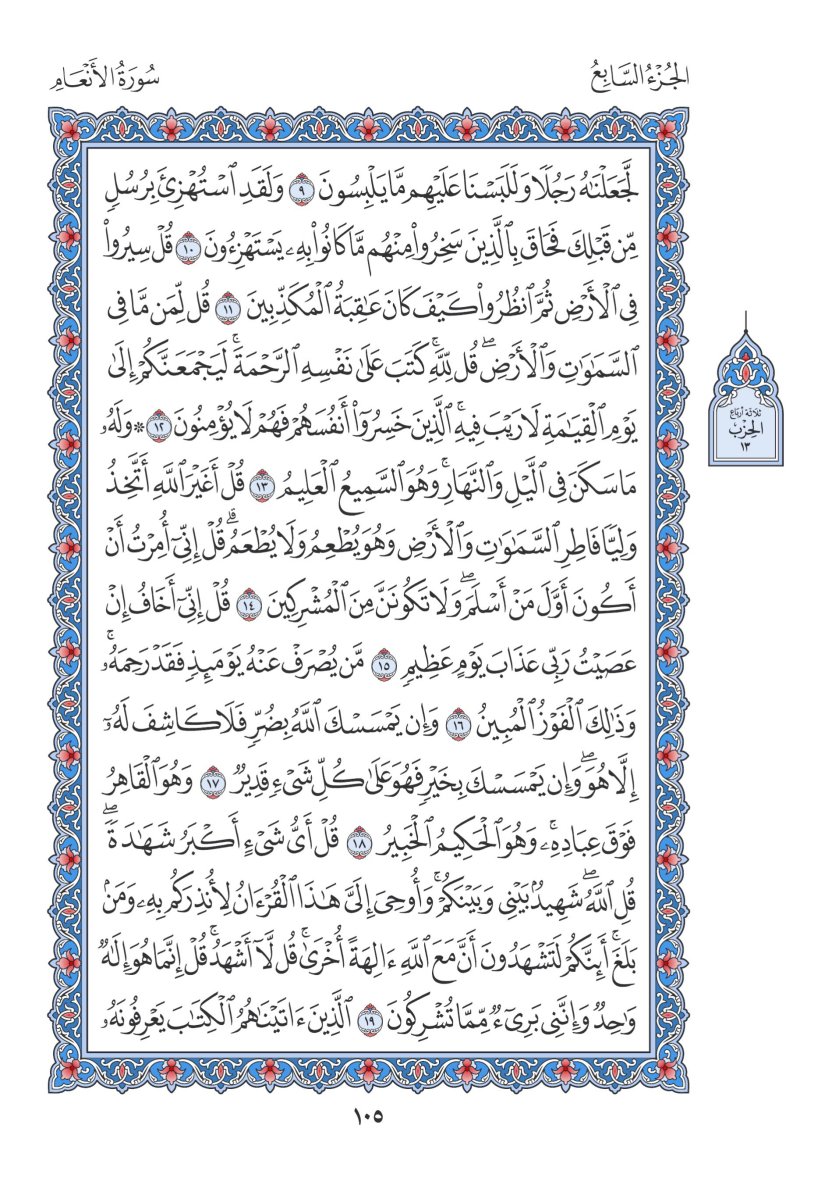 الجُزْءُ السَّابِعُ
سُورَةُ الأَنْعَامِ
لَّجَعَلْنَٰهُ رَجُلًا وَلَلَبَسْنَا عَلَيْهِم مَّا يَلْبِسُونَ ٩ وَلَقَدِ ٱسْتُهْزِئَ بِرُسُلٍ
مِّن قَبْلِكَ فَحَاقَ بِٱلَّذِينَ سَخِرُوا۟ مِنْهُم مَّا كَانُوا۟ بِهِۦ يَسْتَهْزِءُونَ ١٠ قُلْ سِيرُوا۟
فِى ٱلْأَرْضِ ثُمَّ ٱنظُرُوا۟ كَيْفَ كَانَ عَٰقِبَةُ ٱلْمُكَذِّبِينَ ١١ قُل لِّمَن مَّا فِى
ٱلسَّمَٰوَٰتِ وَٱلْأَرْضِۖ قُل لِّلَّهِۚ كَتَبَ عَلَىٰ نَفْسِهِ ٱلرَّحْمَةَۚ لَيَجْمَعَنَّكُمْ إِلَىٰ
يَوْمِ ٱلْقِيَٰمَةِ لَا رَيْبَ فِيهِۚ ٱلَّذِينَ خَسِرُوٓا۟ أَنفُسَهُمْ فَهُمْ لَا يُؤْمِنُونَ ١٢ ۞ وَلَهُۥ
مَا سَكَنَ فِى ٱلَّيْلِ وَٱلنَّهَارِۚ وَهُوَ ٱلسَّمِيعُ ٱلْعَلِيمُ ١٣ قُلْ أَغَيْرَ ٱللَّهِ أَتَّخِذُ
وَلِيًّا فَاطِرِ ٱلسَّمَٰوَٰتِ وَٱلْأَرْضِ وَهُوَ يُطْعِمُ وَلَا يُطْعَمُۗ قُلْ إِنِّىٓ أُمِرْتُ أَنْ
أَكُونَ أَوَّلَ مَنْ أَسْلَمَۖ وَلَا تَكُونَنَّ مِنَ ٱلْمُشْرِكِينَ ١٤ قُلْ إِنِّىٓ أَخَافُ إِنْ
عَصَيْتُ رَبِّى عَذَابَ يَوْمٍ عَظِيمٍ ١٥ مَّن يُصْرَفْ عَنْهُ يَوْمَئِذٍ فَقَدْ رَحِمَهُۥۚ
وَذَٰلِكَ ٱلْفَوْزُ ٱلْمُبِينُ ١٦ وَإِن يَمْسَسْكَ ٱللَّهُ بِضُرٍّ فَلَا كَاشِفَ لَهُۥٓ
إِلَّا هُوَۖ وَإِن يَمْسَسْكَ بِخَيْرٍ فَهُوَ عَلَىٰ كُلِّ شَىْءٍ قَدِيرٌ ١٧ وَهُوَ ٱلْقَاهِرُ
فَوْقَ عِبَادِهِۦۚ وَهُوَ ٱلْحَكِيمُ ٱلْخَبِيرُ ١٨ قُلْ أَىُّ شَىْءٍ أَكْبَرُ شَهَٰدَةًۖ
قُلِ ٱللَّهُۖ شَهِيدٌۢ بَيْنِى وَبَيْنَكُمْۚ وَأُوحِىَ إِلَىَّ هَٰذَا ٱلْقُرْءَانُ لِأُنذِرَكُم بِهِۦ وَمَنۢ
بَلَغَۚ أَئِنَّكُمْ لَتَشْهَدُونَ أَنَّ مَعَ ٱللَّهِ ءَالِهَةً أُخْرَىٰۚ قُل لَّآ أَشْهَدُۚ قُلْ إِنَّمَا هُوَ إِلَٰهٌ
وَٰحِدٌ وَإِنَّنِى بَرِىٓءٌ مِّمَّا تُشْرِكُونَ ١٩ ٱلَّذِينَ ءَاتَيْنَٰهُمُ ٱلْكِتَٰبَ يَعْرِفُونَهُۥ
ثلاثة أرباع
الحِزْب
١٣
١٠٥